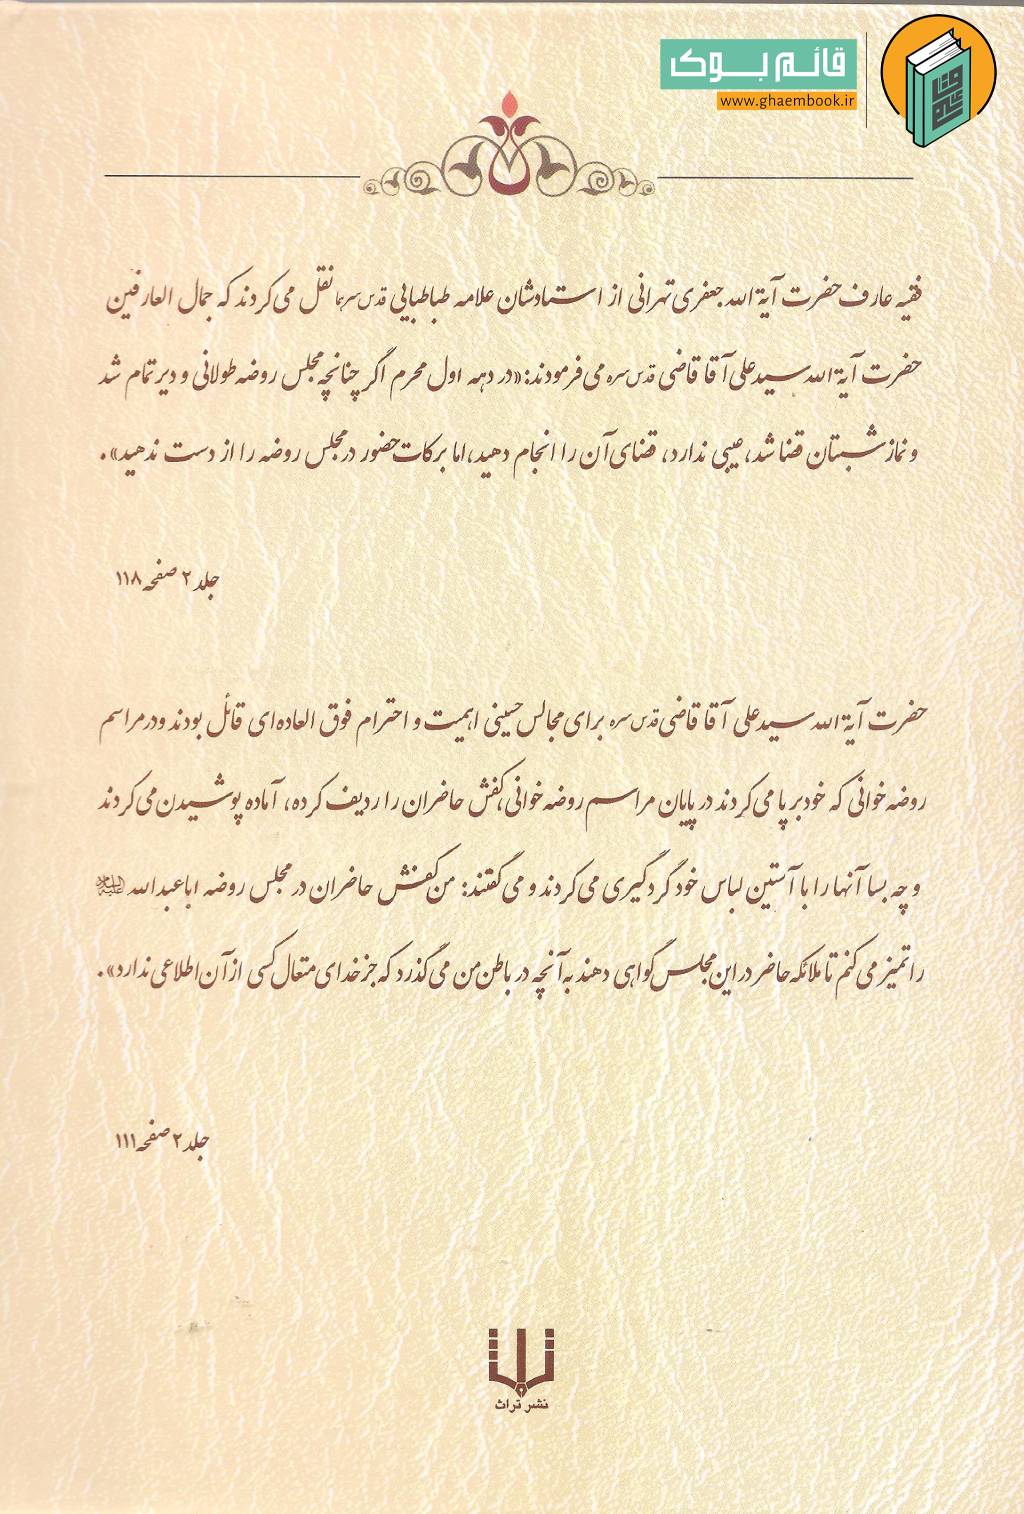 قائم بوک
www.ghaembook.ir
فقیه عارف حضرت آیة الله جعفری تهرانی از استادشان علامه طباطبایی قدس سرهما نقل می کردند که جمال العارفین
حضرت آیة الله سید علی آقا قاضی قدس سره می فرمودند: «در دهه اول محرم اگر چنانچه مجلس روضه طولانی و دیر تمام شد
و نماز شبتان قضا شد، عیبی ندارد، قضای آن را انجام دهید، اما برکات حضور در مجلس روضه را از دست ندهید».
جلد ۲ صفحه ۱۱۸
حضرت آیة الله سید علی آقا قاضی قدس سره برای مجالس حسینی اهمیت و احترام فوق العاده ای قائل بودند و در مراسم
روضه خوانی که خود بر پا می کردند در پایان مراسم روضه خوانی، کفش حاضران را ردیف کرده، آماده پوشیدن می کردند
و چه بسا آنها را با آستین لباس خود گردگیری می کردند و می گفتند: من کفش حاضران در مجلس روضه اباعبدالله علیه السلام
را تمیز می کنم تا ملائکه حاضر در این مجلس گواهی دهند به آنچه در باطن من می گذرد که جز خدای متعال کسی از آن اطلاعی ندارد».
جلد ۲ صفحه ۱۱۱
نشر تراث